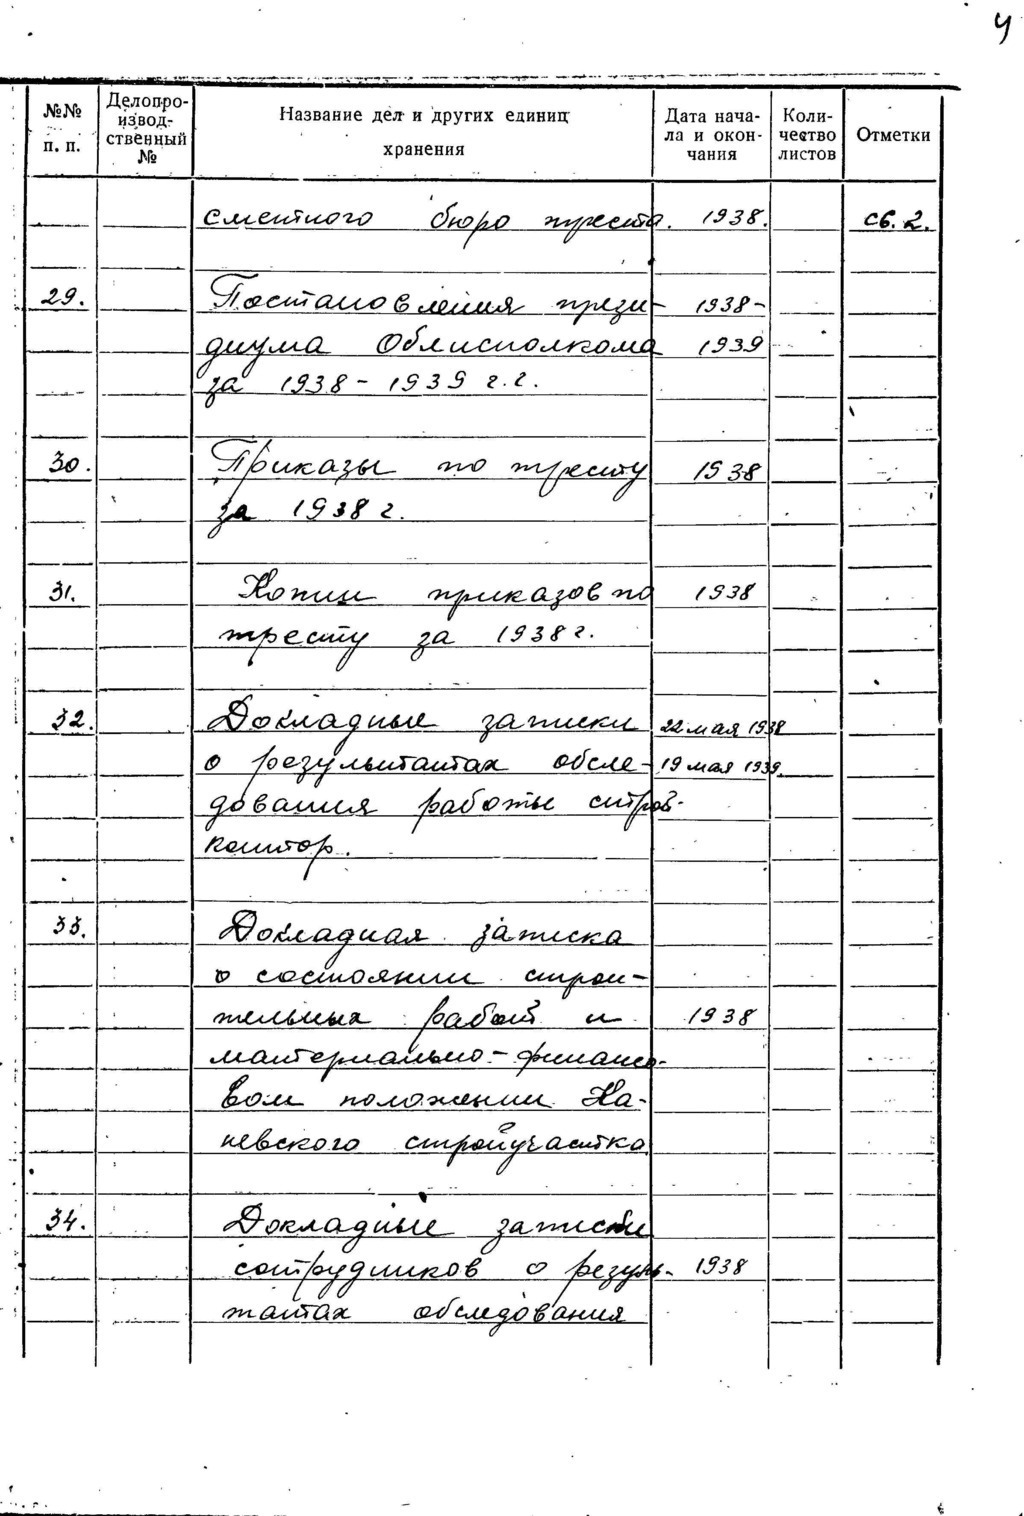 4
№№ п. п. Делопро-изводственный № Название дел и других единиц хранения Дата начала и окончания Количество листов Отметки
сметного бюро треста. 1938. св. 2.
29. Постановления прези- 1938-
диума Облисполкома 1939
за 1938 - 1939 г.г.
30. Приказы по тресту 1938
за 1938 г.
31. Копии приказов по 1938
тресту за 1938 г.
32. Докладные записки 22 мая 1938
о результатах обсле- 19 мая 1939.
дования работы строй-
контор.
33. Докладная записка
о состоянии строи-
тельных работ и 1938
материально-финансо-
вом положении Ка-
невского стройучастка.
34. Докладные записки
сотрудников о резуль- 1938
татах обследования